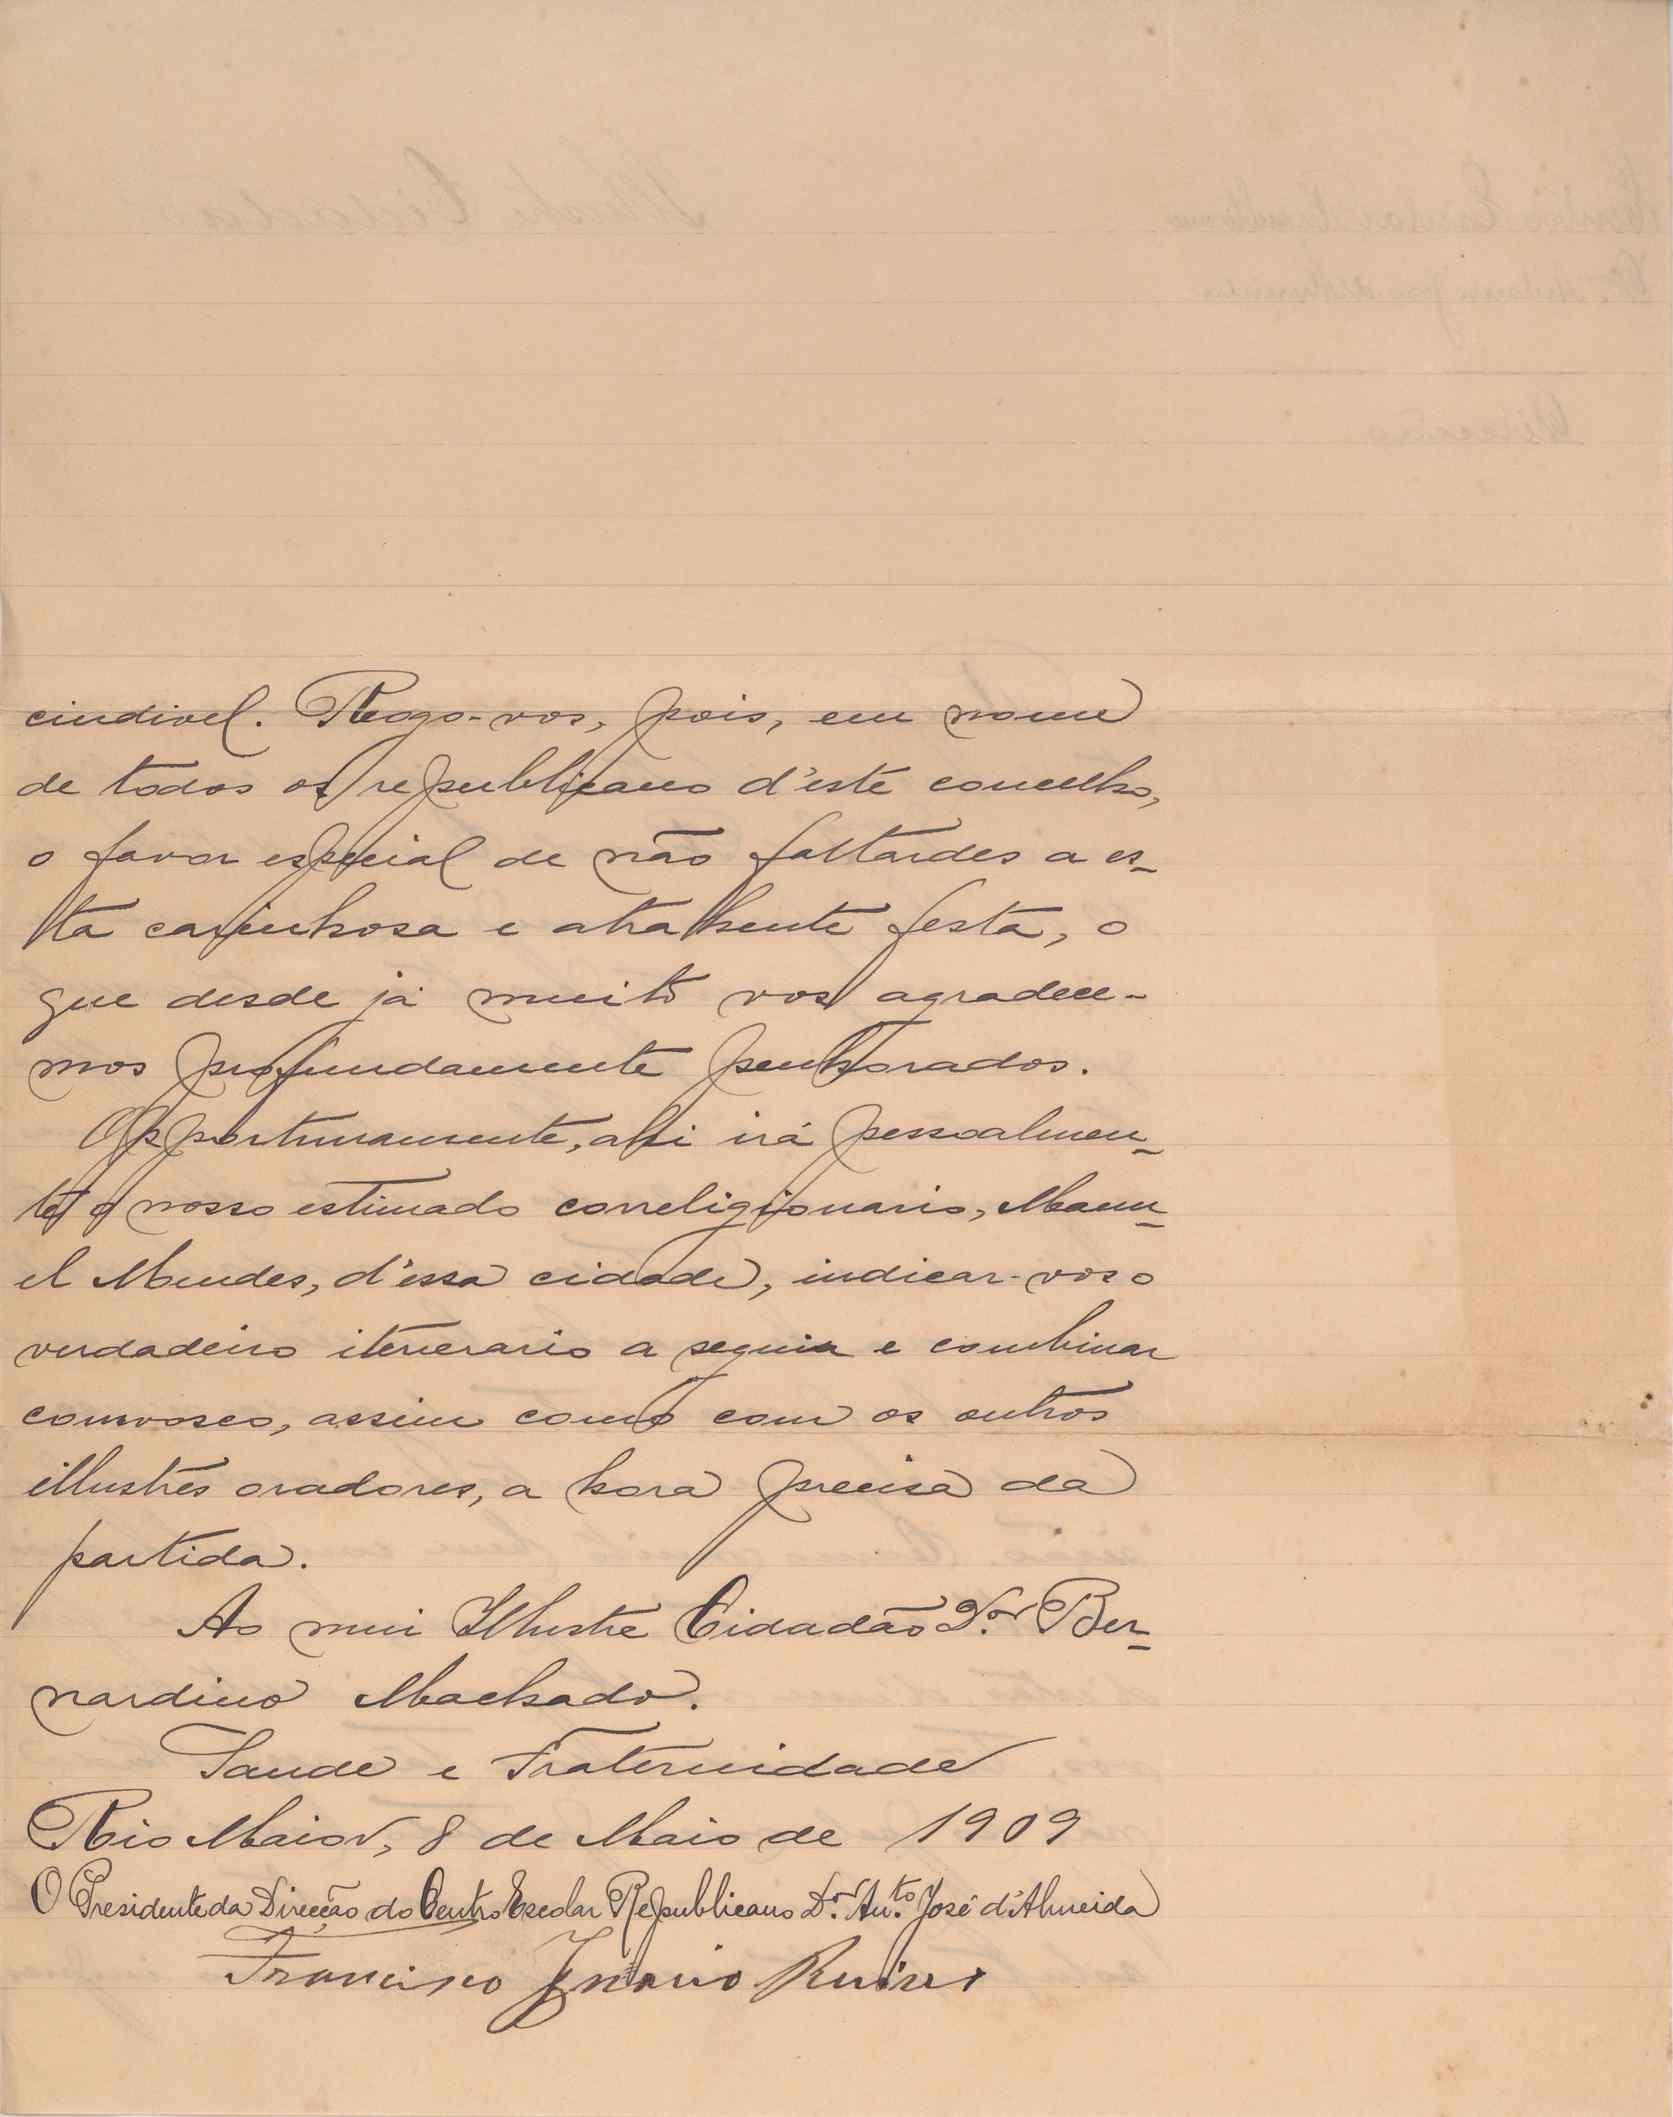 cindivel. Rogo-vos, pois, em nome
de todos os republicano d'este concelho,
o favor especial de não faltardes a es-
ta carinhosa e atrahente festa, o
que desde já muito vos agradece-
mos profundamente penhorados.
Opportunamente, ahi irá pessoalmen-
te o nosso estimado correligionario, Manu-
el Mendes, d'essa cidade, indicar-vos o
verdadeiro itenerario a seguir e combinar
comvosco, assim como com os outros
illustres oradores, a hora precisa da
partida.
Ao mui Illustre Cidadão D.or Ber-
nardino Machado.
Saude e Fraternidade
Rio Maior, 8 de Maio de 1909
O Presidente da Direcção do Centro Escolar Republicano D.or An.to José d'Almeida
Francisco Ignacio